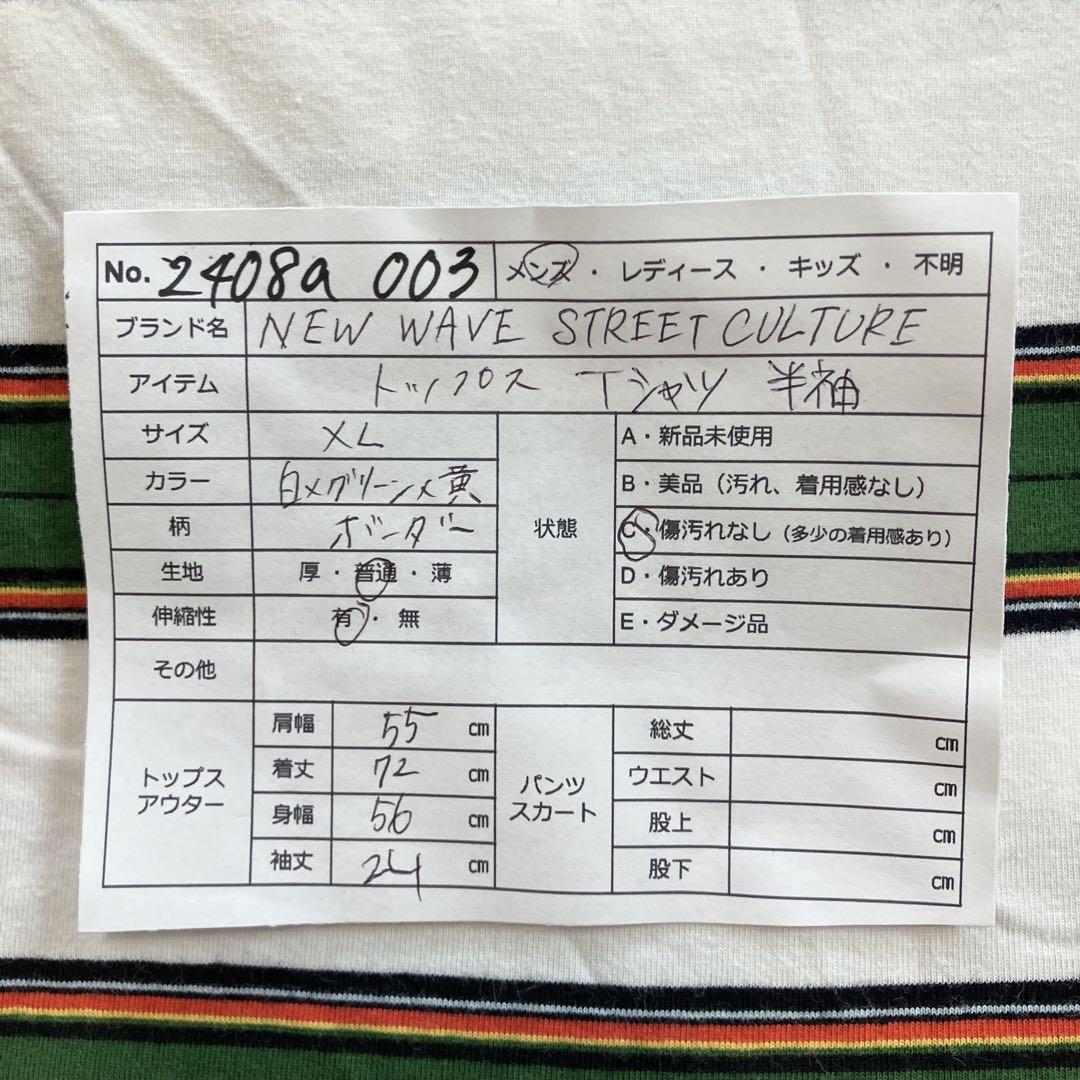 No. 2408a 003 メンズ ・ レディース ・ キッズ ・ 不明
ブランド名 NEW WAVE STREET CULTURE
アイテム トップス Tシャツ 半袖
サイズ XL
カラー 白×グリーン×黄
柄 ボーダー
生地 厚・普通・薄
伸縮性 有・無
状態
A・新品未使用
B・美品（汚れ、着用感なし）
C・傷汚れなし（多少の着用感あり）
D・傷汚れあり
E・ダメージ品
その他
トップス
アウター
肩幅 55 cm
着丈 72 cm
身幅 56 cm
袖丈 24 cm
パンツ
スカート
総丈 cm
ウエスト cm
股上 cm
股下 cm